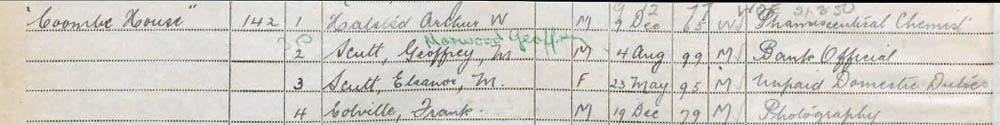 9 12 77
"Coombe House" 142 1 Halsted Arthur W M 9 Dec 65 W Pharmaceutical Chemist
Norwood Geoffrey
2 Scutt, Geoffrey, M. M 4 Aug 99 M Bank Official
3 Scutt, Eleanor, M. F 23 May 95 M Unpaid Domestic Duties
4 Colville, Frank. M 19 Dec 79 M Photography